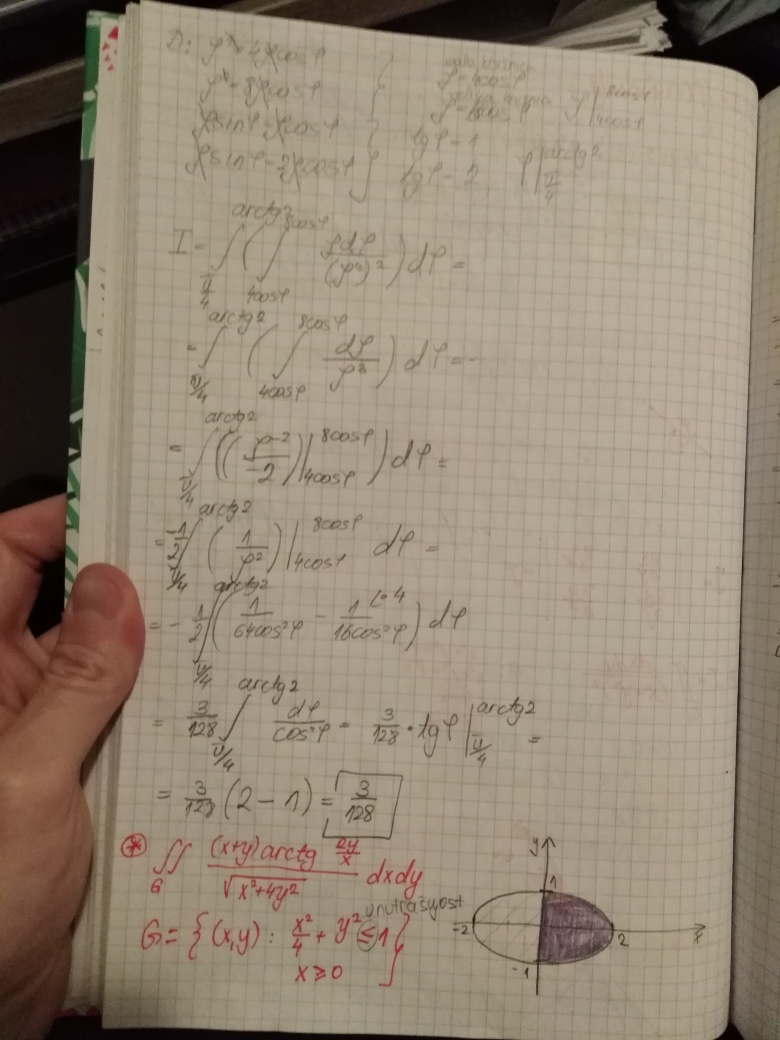 D: ρ² = 4ρcosφ
ρ² = 8ρcosφ
ρsinφ = ρcosφ
ρsinφ = 2ρcosφ
ρ = 4cosφ
ρ = 8cosφ
ρ |₄cosφ^8cosφ
tgφ = 1
tgφ = 2
φ |π/4^arctg2
I = ∫π/4^arctg2 ( ∫4cosφ^8cosφ ρdρ/(ρ²)² ) dφ =
= ∫π/4^arctg2 ( ∫4cosφ^8cosφ dρ/ρ³ ) dφ =
= ∫π/4^arctg2 ( (ρ⁻²/-2) |4cosφ^8cosφ ) dφ =
= -1/2 ∫π/4^arctg2 ( 1/ρ² ) |4cosφ^8cosφ dφ =
= -1/2 ∫π/4^arctg2 ( 1/64cos²φ - 1/16cos²φ ) dφ
= 3/128 ∫π/4^arctg2 dφ/cos²φ = 3/128 · tgφ |π/4^arctg2 =
= 3/128 (2 - 1) = 3/128
* ∬G (x+y)arctg 2y/x / √x²+4y² dxdy
unutrašnjost
G = { (x,y) : x²/4 + y² ≤ 1
x ≥ 0 }
y
1
-2
2
x
-1